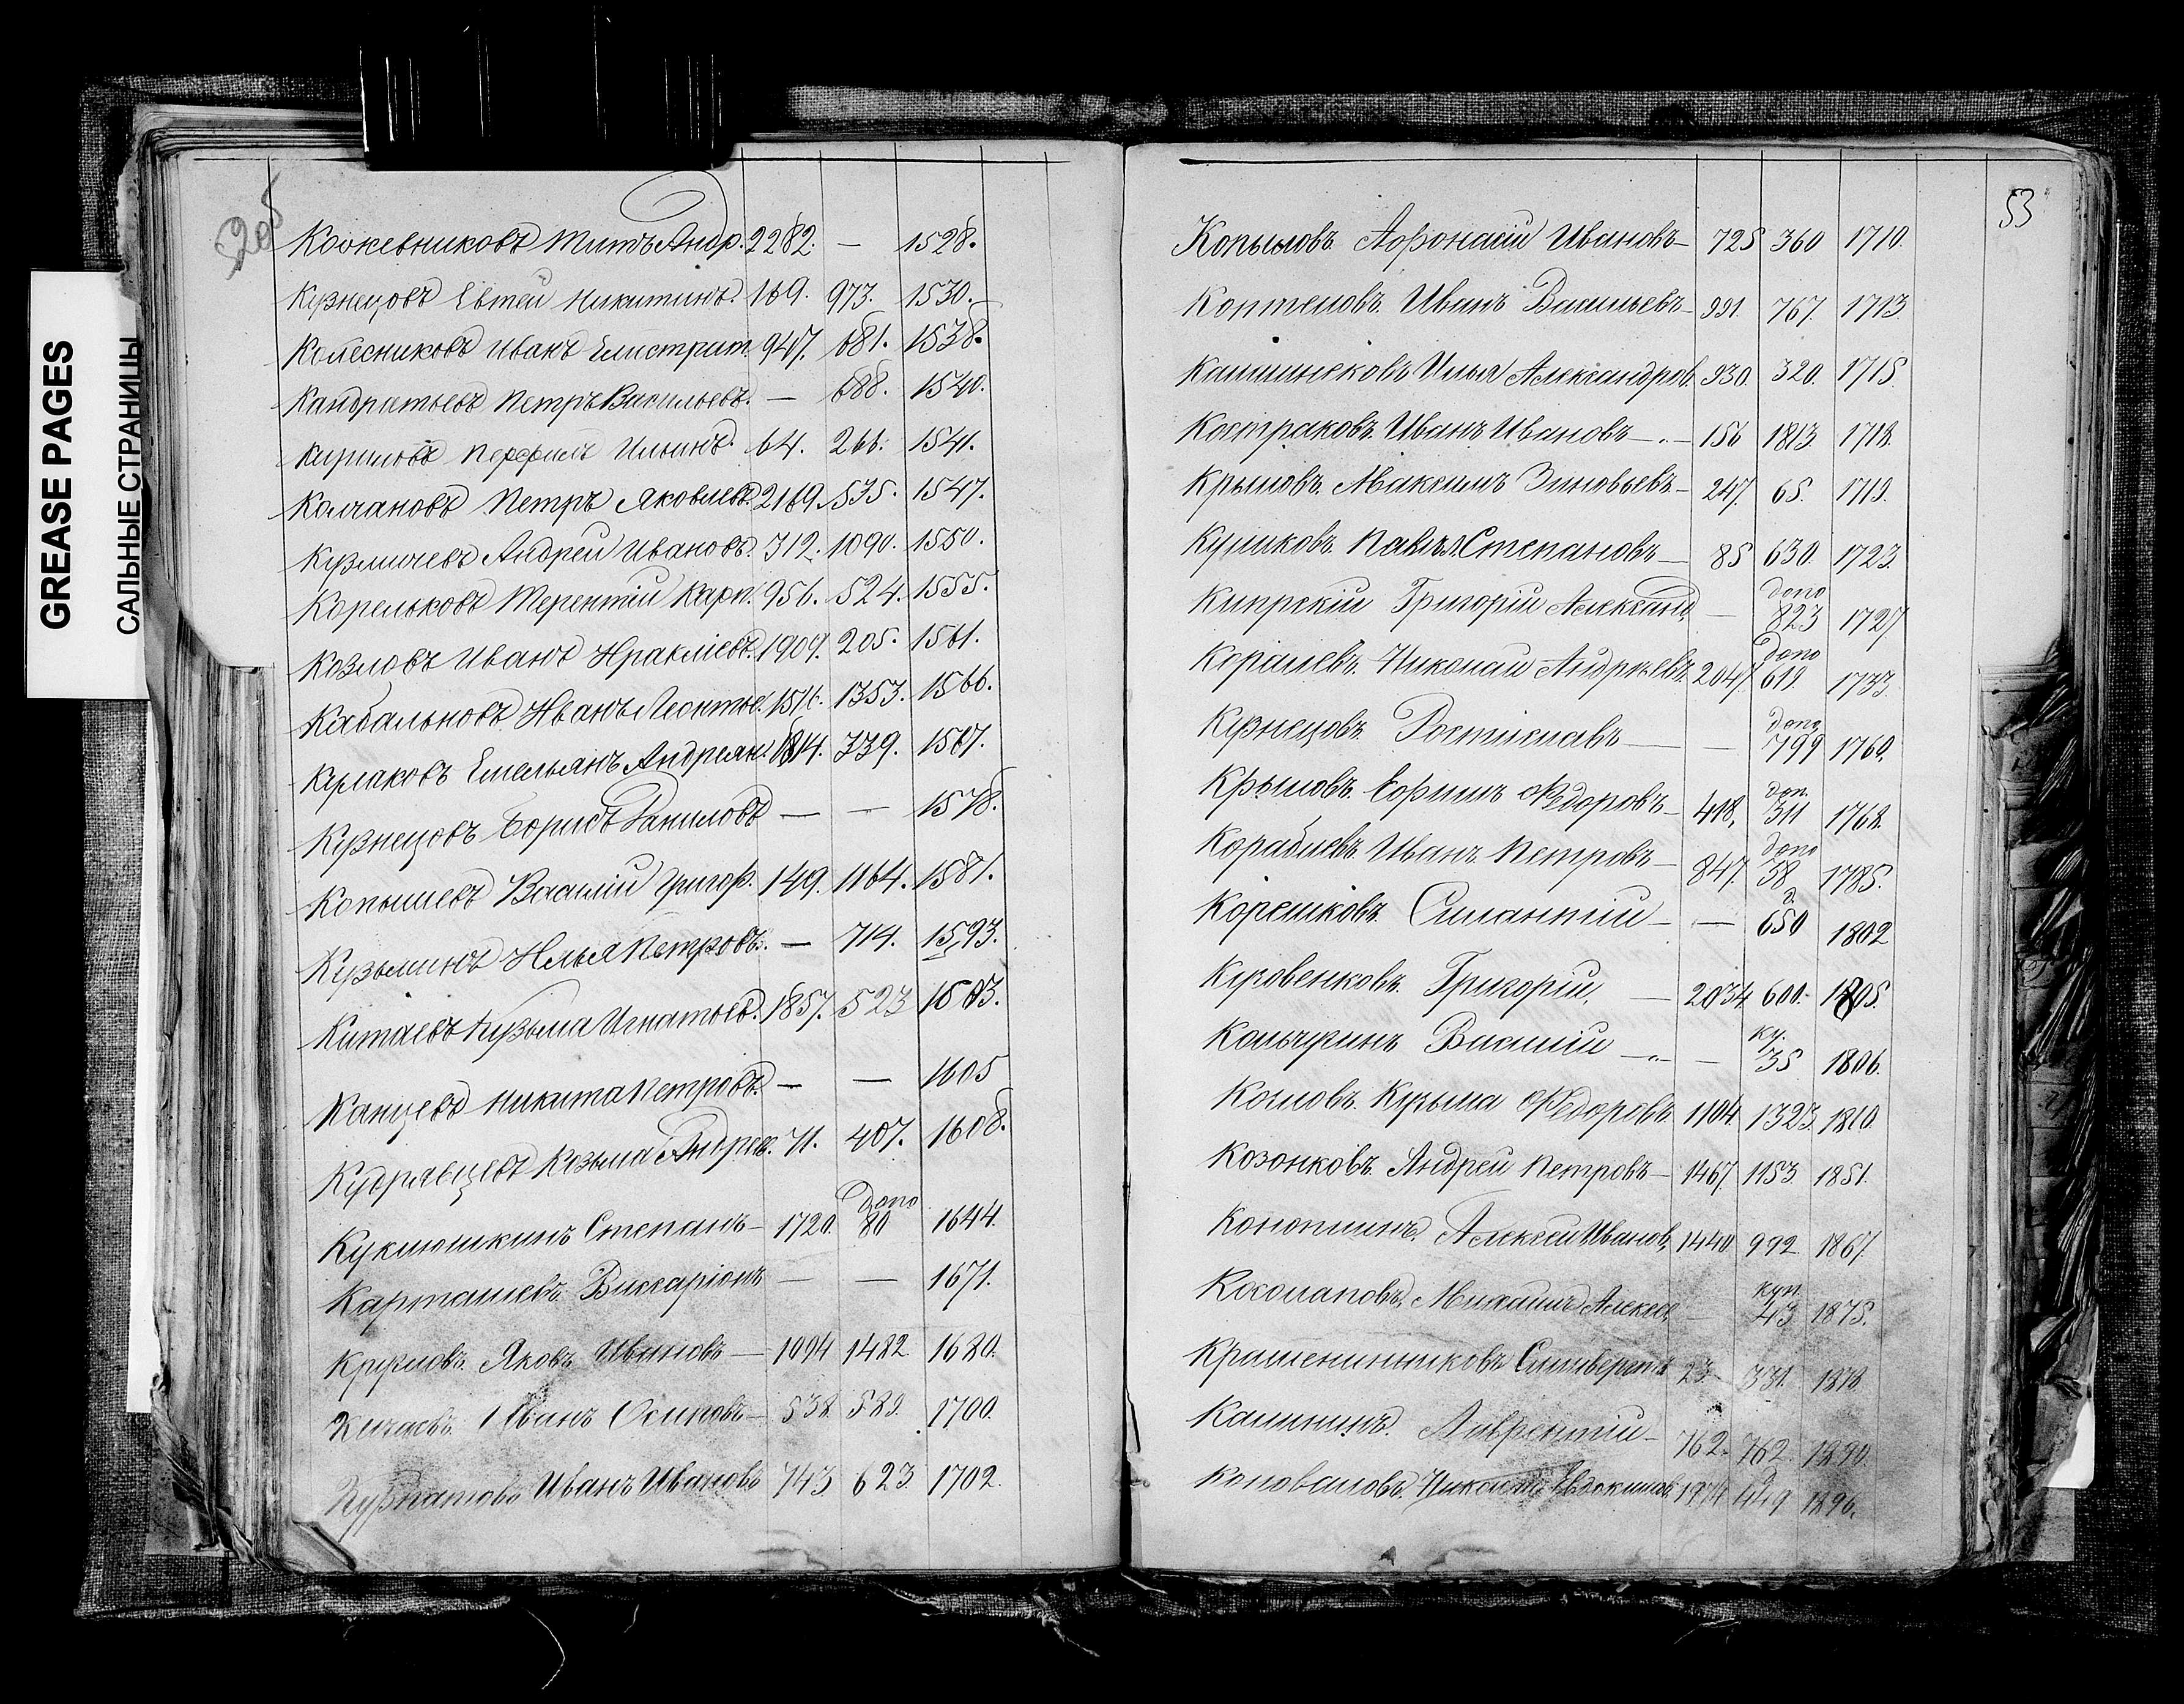 GREASE PAGES
САЛЬНЫЕ СТРАНИЦЫ
52об
Кожевниковъ Титъ Андр. 2282. — 1528.
Кузнецовъ Евтей Никитинъ. 169. 973. 1530.
Колесниковъ Иванъ Елистрат. 947. 681. 1538.
Кандратьевъ Петръ Васильевъ. — 688. 1540.
Кириловъ Перфилъ Ильинъ. 64. 266. 1541.
Колчановъ Петръ Яковлевъ. 2169. 535. 1547.
Кузмичевъ Андрей Ивановъ. 312. 1090. 1550.
Корельковъ Терентій Карп. 956. 524. 1555.
Козловъ Иванъ Ираклiевъ. 1909. 205. 1561.
Кабальновъ Иванъ Леонтье. 1516. 1353. 1566.
Кулаковъ Емельянъ Андреян. 1814. 339. 1567.
Кузнецовъ Борисъ Даниловъ — — 1578.
Копышевъ Василій Григор. 149. 1164. 1581.
Кузьминъ Илья Петровъ. — 714. 1593.
Китаевъ Кузьма Игнатьев. 1857. 523 1603.
Канцевъ Никита Петровъ. — — 1605
Кудрявцевъ Козьма Андрее. 71. 407. 1608.
Куклюшкинъ Степанъ — 1720. допо 80 1644.
Карташевъ Виссаріонъ — — 1671.
Кругловъ Яковъ Ивановъ — 1094 1482 1680.
Кичаевъ Иванъ Осиповъ — 538 589. 1700.
Курпатовъ Иванъ Ивановъ 743 623 1702.
53
Копыловъ Афонасій Ивановъ — 725 360 1710.
Коптеловъ. Иванъ Васильевъ — 991. 767. 1713
Калининковъ Илья Александров. 930. 320. 1715.
Костраковъ Иванъ Ивановъ — „ — 156 1813 1718.
Крыловъ. Максимъ Зиновьевъ — 247. 65. 1719.
Куликовъ. Павелъ Степановъ — 85 630. 1723.
Кипрскій Григорій Александ. — допо 823 1727
Королевъ. Николай Андреевъ. 2047. допо 619. 1733.
Кузнецовъ. Ростиславъ — — допо 799 1760.
Крыловъ. Ефимъ Федоровъ — 418. доп. 311 1768.
Кораблевъ. Иванъ Петровъ — 847. допо 38 1785.
Корешковъ. Силантій — — д. 650 1802
Кузовенковъ. Григорій. — 2034. 600. 1805.
Кольчуринъ Василій — „ — — ку. 35 1806.
Козловъ. Кузьма Федоровъ. 1104. 1323. 1810.
Козонковъ. Андрей Петровъ — 1467 1153. 1851.
Коноплинъ. Алексей Иванов. 1440. 992 1867.
Косолаповъ. Михаилъ Алексе. — куп. 43 1875.
Крашенинниковъ Сильверстъ 23 — 331. 1878
Калининъ. Лаврентій — 762. 762. 1890.
Коноваловъ. Николай Евдокимов. 1974 449 1896.